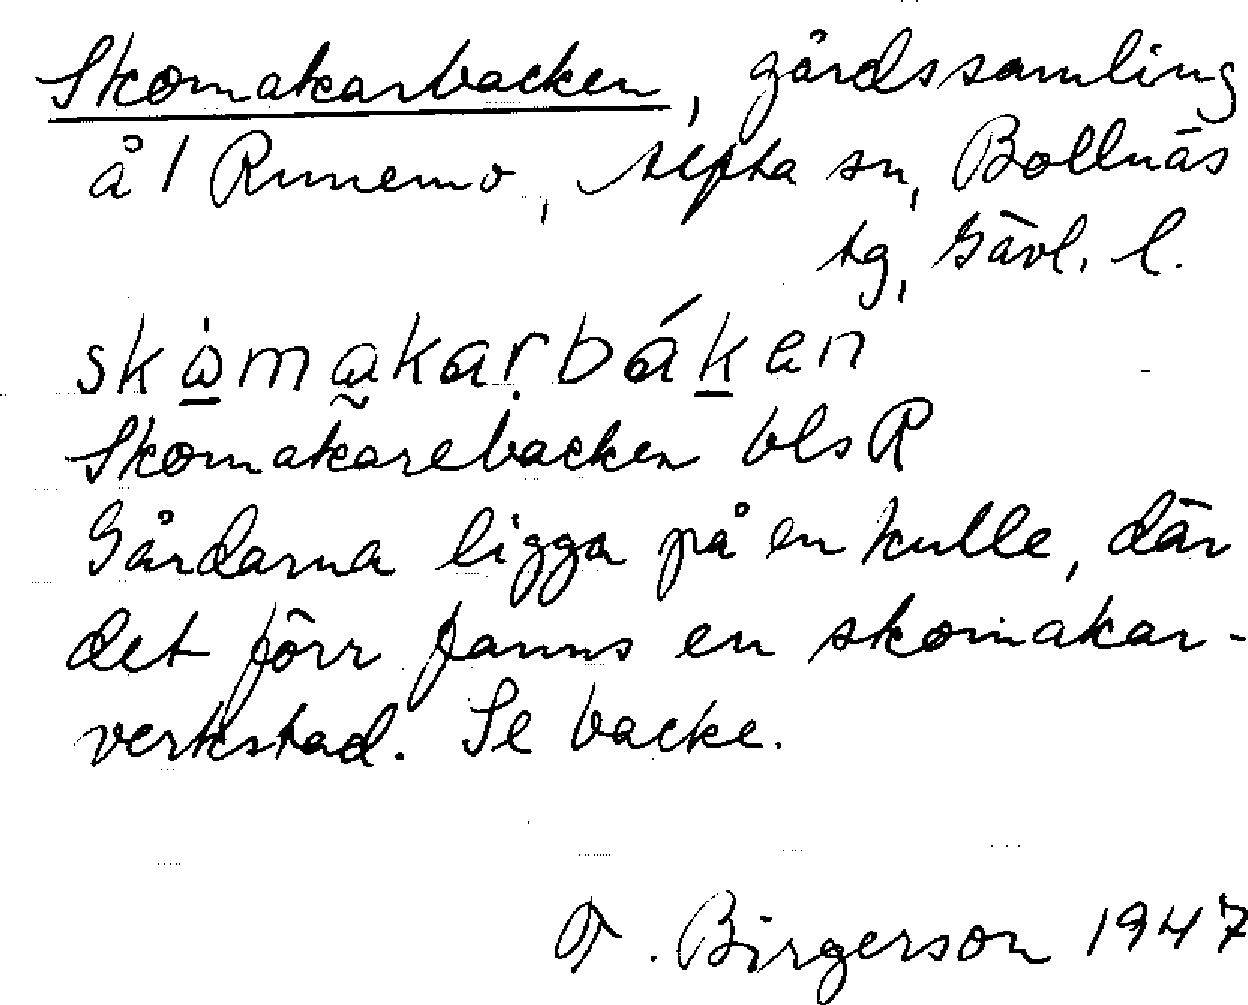 Skomakarbacken, gårdssamling
å 1 Runemo, Alfta sn, Bollnäs
tg, Gävl. l.
Skomakarebacken bls R
Gårdarna ligga på en kulle, där
det förr fanns en skomakar-
verkstad. Se backe.
F. Birgerson 1947